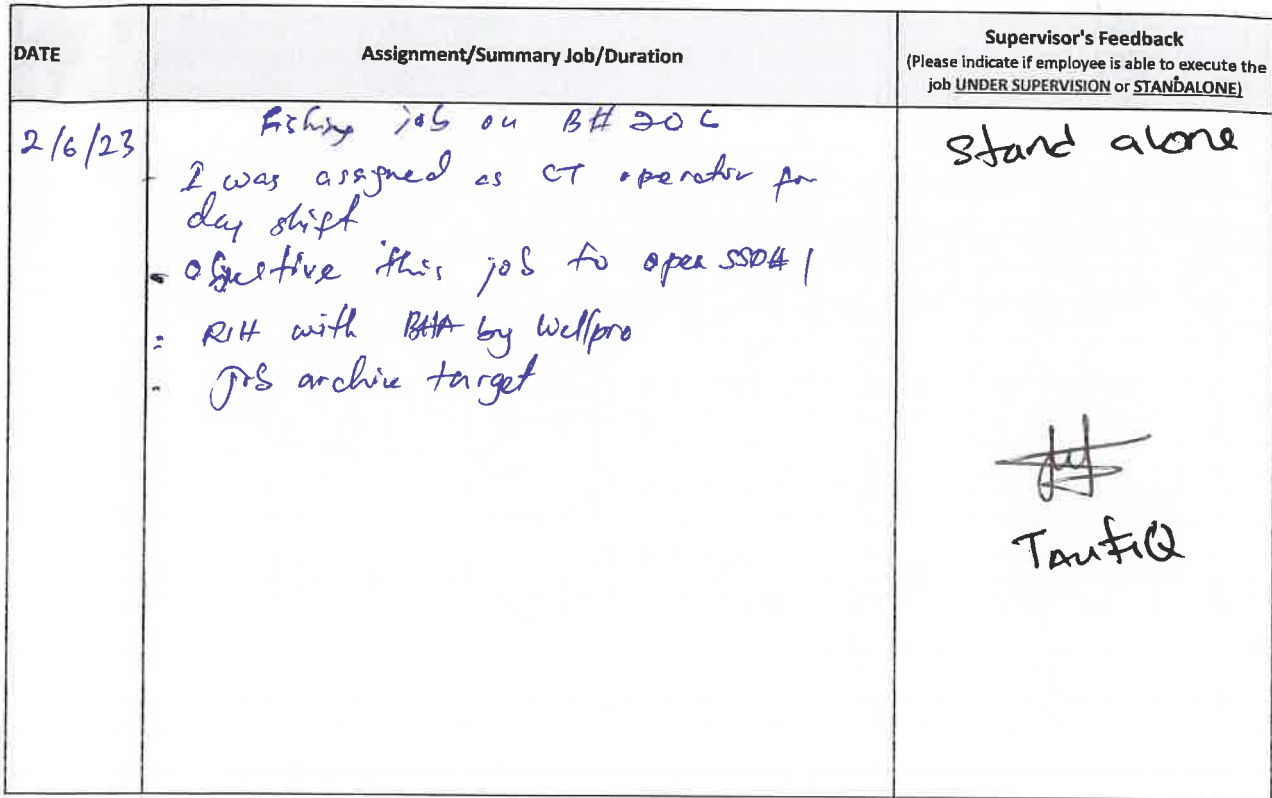 DATE
Assignment/Summary Job/Duration
Supervisor's Feedback
(Please indicate if employee is able to execute the
job UNDER SUPERVISION or STANDALONE)
2/6/23
Fishing job on B# 20 L
- I was assigned as CT operator for
day shift
- objective this job to open SSD# 1
- RIH with BHA by Wellpro
- Job archive target
Stand alone
TAUFIQ